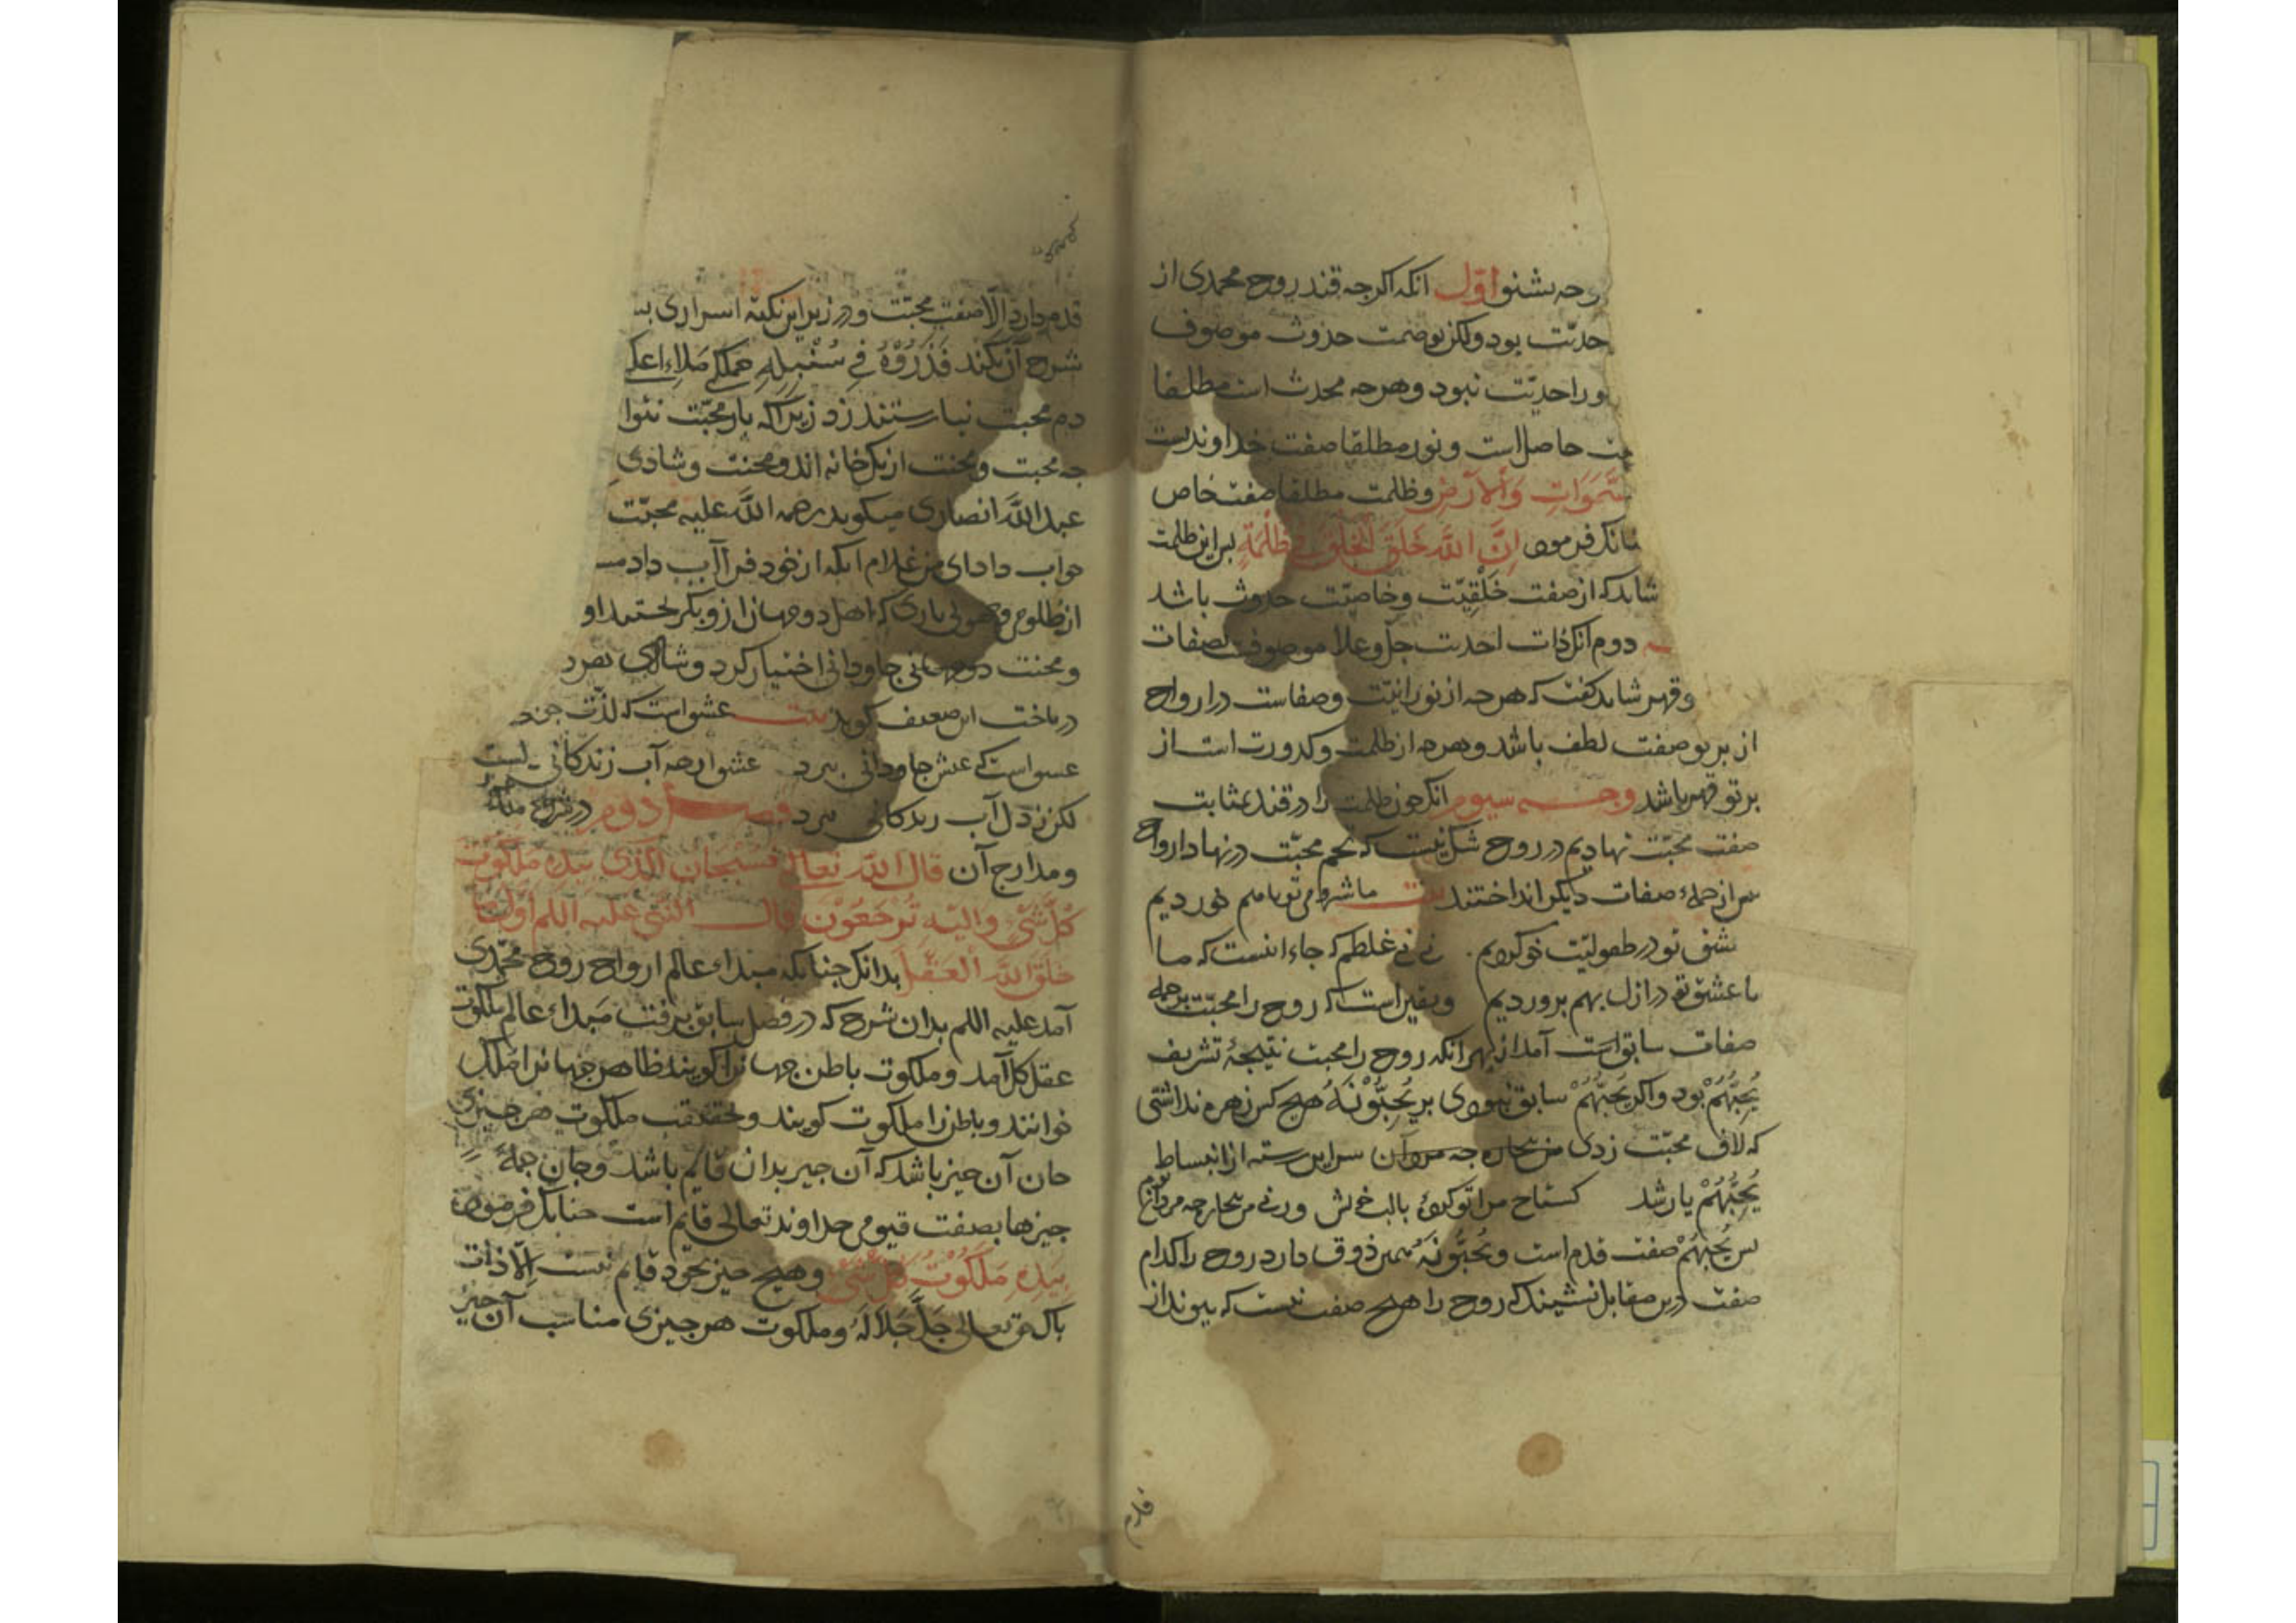 بشنو اوّل انکه اکرجه قند روح محمدی از
بود ولکن بوصمت حدوث موصوف
احدیّت نبود و هرجه محدث است مطلقا
حاصل است و نور مطلقا صفت خداوندست
وَالْاَرْضِ و ظلمت مطلقا صفت خاص
فرمود اِنَّ اللّٰه خَلَقَ الْخَلْقَ فِی ظُلْمَةٍ بس این ظلمت
شاید که از صفت خَلْقِیّت و خاصیّت حدوث باشد
دوم انک ذات احدیت جلّ و علا موصوفست بصفات
و قهر شاید کفت که هرجه از نورانیّت و صفاست در ارواح
از برتو صفت لطف باشد و هرجه از ظلمت و کدورت است از
برتو قهر باشد وجه سیوم انک جون ظلمت را در قند بمثابت
صفت محبّت نهادیم در روح شک نیست که تخم محبّت در نهاد ارواح
بیش از جملهٔ صفات دیکر انداختند بیت ما شیر و می تو با هم خوردیم
عشق تو در طفولیّت خو کردیم نی نی غلطم که جاء انست که ما
با عشق تو در ازل بهم بروردیم و یقین است که روح را محبّت بر جمله
صفات سابق است آمد از بهر انکه روح را محبت نتیجهٔ تشریف
یُحِبُّهُمْ بود و اکر یُحِبُّهُمْ سابق نبودی بر یُحِبُّوْنَهُ هیج کس زهره نداشتی
که لاف محبّت زدی من بیجاره جه مرد آن سر این رسته از انبساط
یُحِبُّهُمْ یار شد کستاخ مرا تو کردهٔ با لب خویش ورنی من بیجاره جه مرد آنم
بس یُحِبُّهُمْ صفت قدم است و یُحِبُّوْنَهُ همین ذوق دارد روح را کدام
صفت درین مقابل نشیند که روح را هیج صفت نیست که بیوند از
قدم
قدم دارد الّا صفت محبّت و در زیر این نکته اسراری
شرح آن نکند فَذَرُوْهُ فِی سُنْبُلِهِ جملکی ملاء اعلی
دم محبت نیارستند زد زیراکه بار محبّت
جه محبت و محنت از یک خانه اند و محنت و شادی
عبد اللّٰه انصاری میکوید رحمه اللّٰه علیه محبّت
جواب داد ای من غلام انکه از خود فرا آب داد
از ظلومی و جهولی باری که اهل دو جهان ازو بکریختند او
و محنت دو جهانی جاودانی اختیار کرد و شادی
درباخت این ضعیف کوید بیت عشق است که لذّت
عشق است که عیش جاودانی ببرد عشق ارجه آب زندکانی
لکن ز دل آب زندکانی ببرد فصل دوم در شرح
و مدارج آن قال اللّٰه تعالی فَسُبْحَانَ الَّذِی بِیَدِهِ مَلَکُوْتُ
کُلِّ شَیْ وَاِلَیْهِ تُرْجَعُوْنَ قال النّبی علیه اللم اَوَّلُ مَا
خَلَقَ اللّٰهُ الْعَقْلَ بدانک جنانکه مبداء عالم ارواح روح محمّدی
آمد علیه اللم بدان شرح که در فصل سابق برفت مبداء عالم ملکوت
عقل کل آمد و ملکوت باطن جهانرا کویند ظاهر جهانرا ملک
خوانند و باطن را ملکوت کویند و بحقیقت ملکوت هر جیزی
جان آن جیز باشد که آن جیز بدان قایم باشد و جان جملهٔ
جیزها بصفت قیومی خداوند تعالی قایم است جنانک فرمود
بِیَدِهِ مَلَکُوْتُ کُلِّ شَیْ و هیج جیز بخود قایم نیست الّا ذات
باک حق تعالی جَلَّ جَلَالَهُ و ملکوت هر جیزی مناسب آن جیز